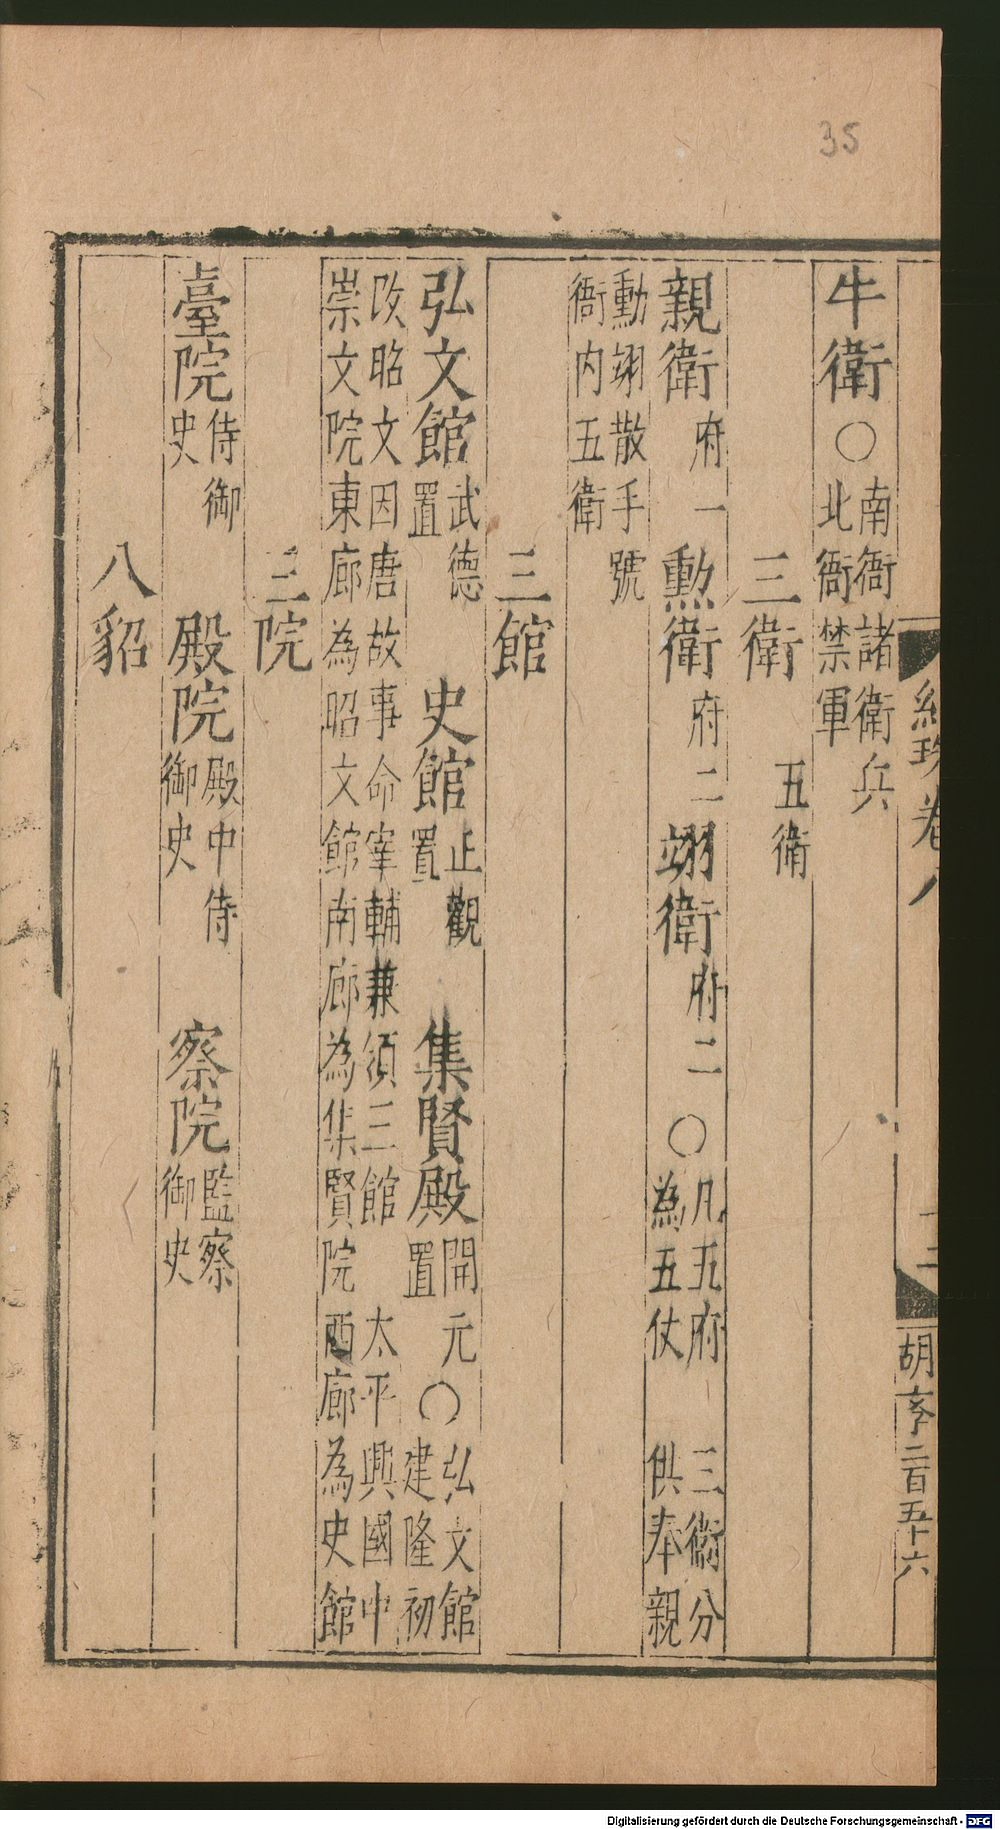 35
紺珠卷八
胡亨二百五十六
牛衛 ○ 南衙諸衛兵
北衙禁軍
三衛 五衛
親衛 府一 勳衛 府二 翊衛 府二 ○ 凡五府 為五仗 三衛分 供奉親
勳翊散手號
衙内五衛
三館
弘文館 武德置 史館 正觀置 集賢殿 開元置 ○ 弘文館 建隆初
改昭文因唐故事命宰輔兼須三館 太平興國中
崇文院東廊為昭文館南廊為集賢院西廊為史館
三院
臺院 侍御史 殿院 殿中侍御史 察院 監察御史
八貂
Digitalisierung gefördert durch die Deutsche Forschungsgemeinschaft - DFG